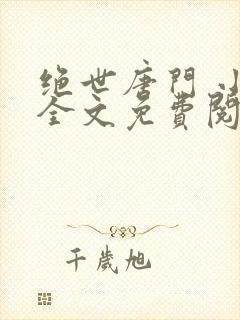 绝世唐門小
全文免費閱
千歲旭